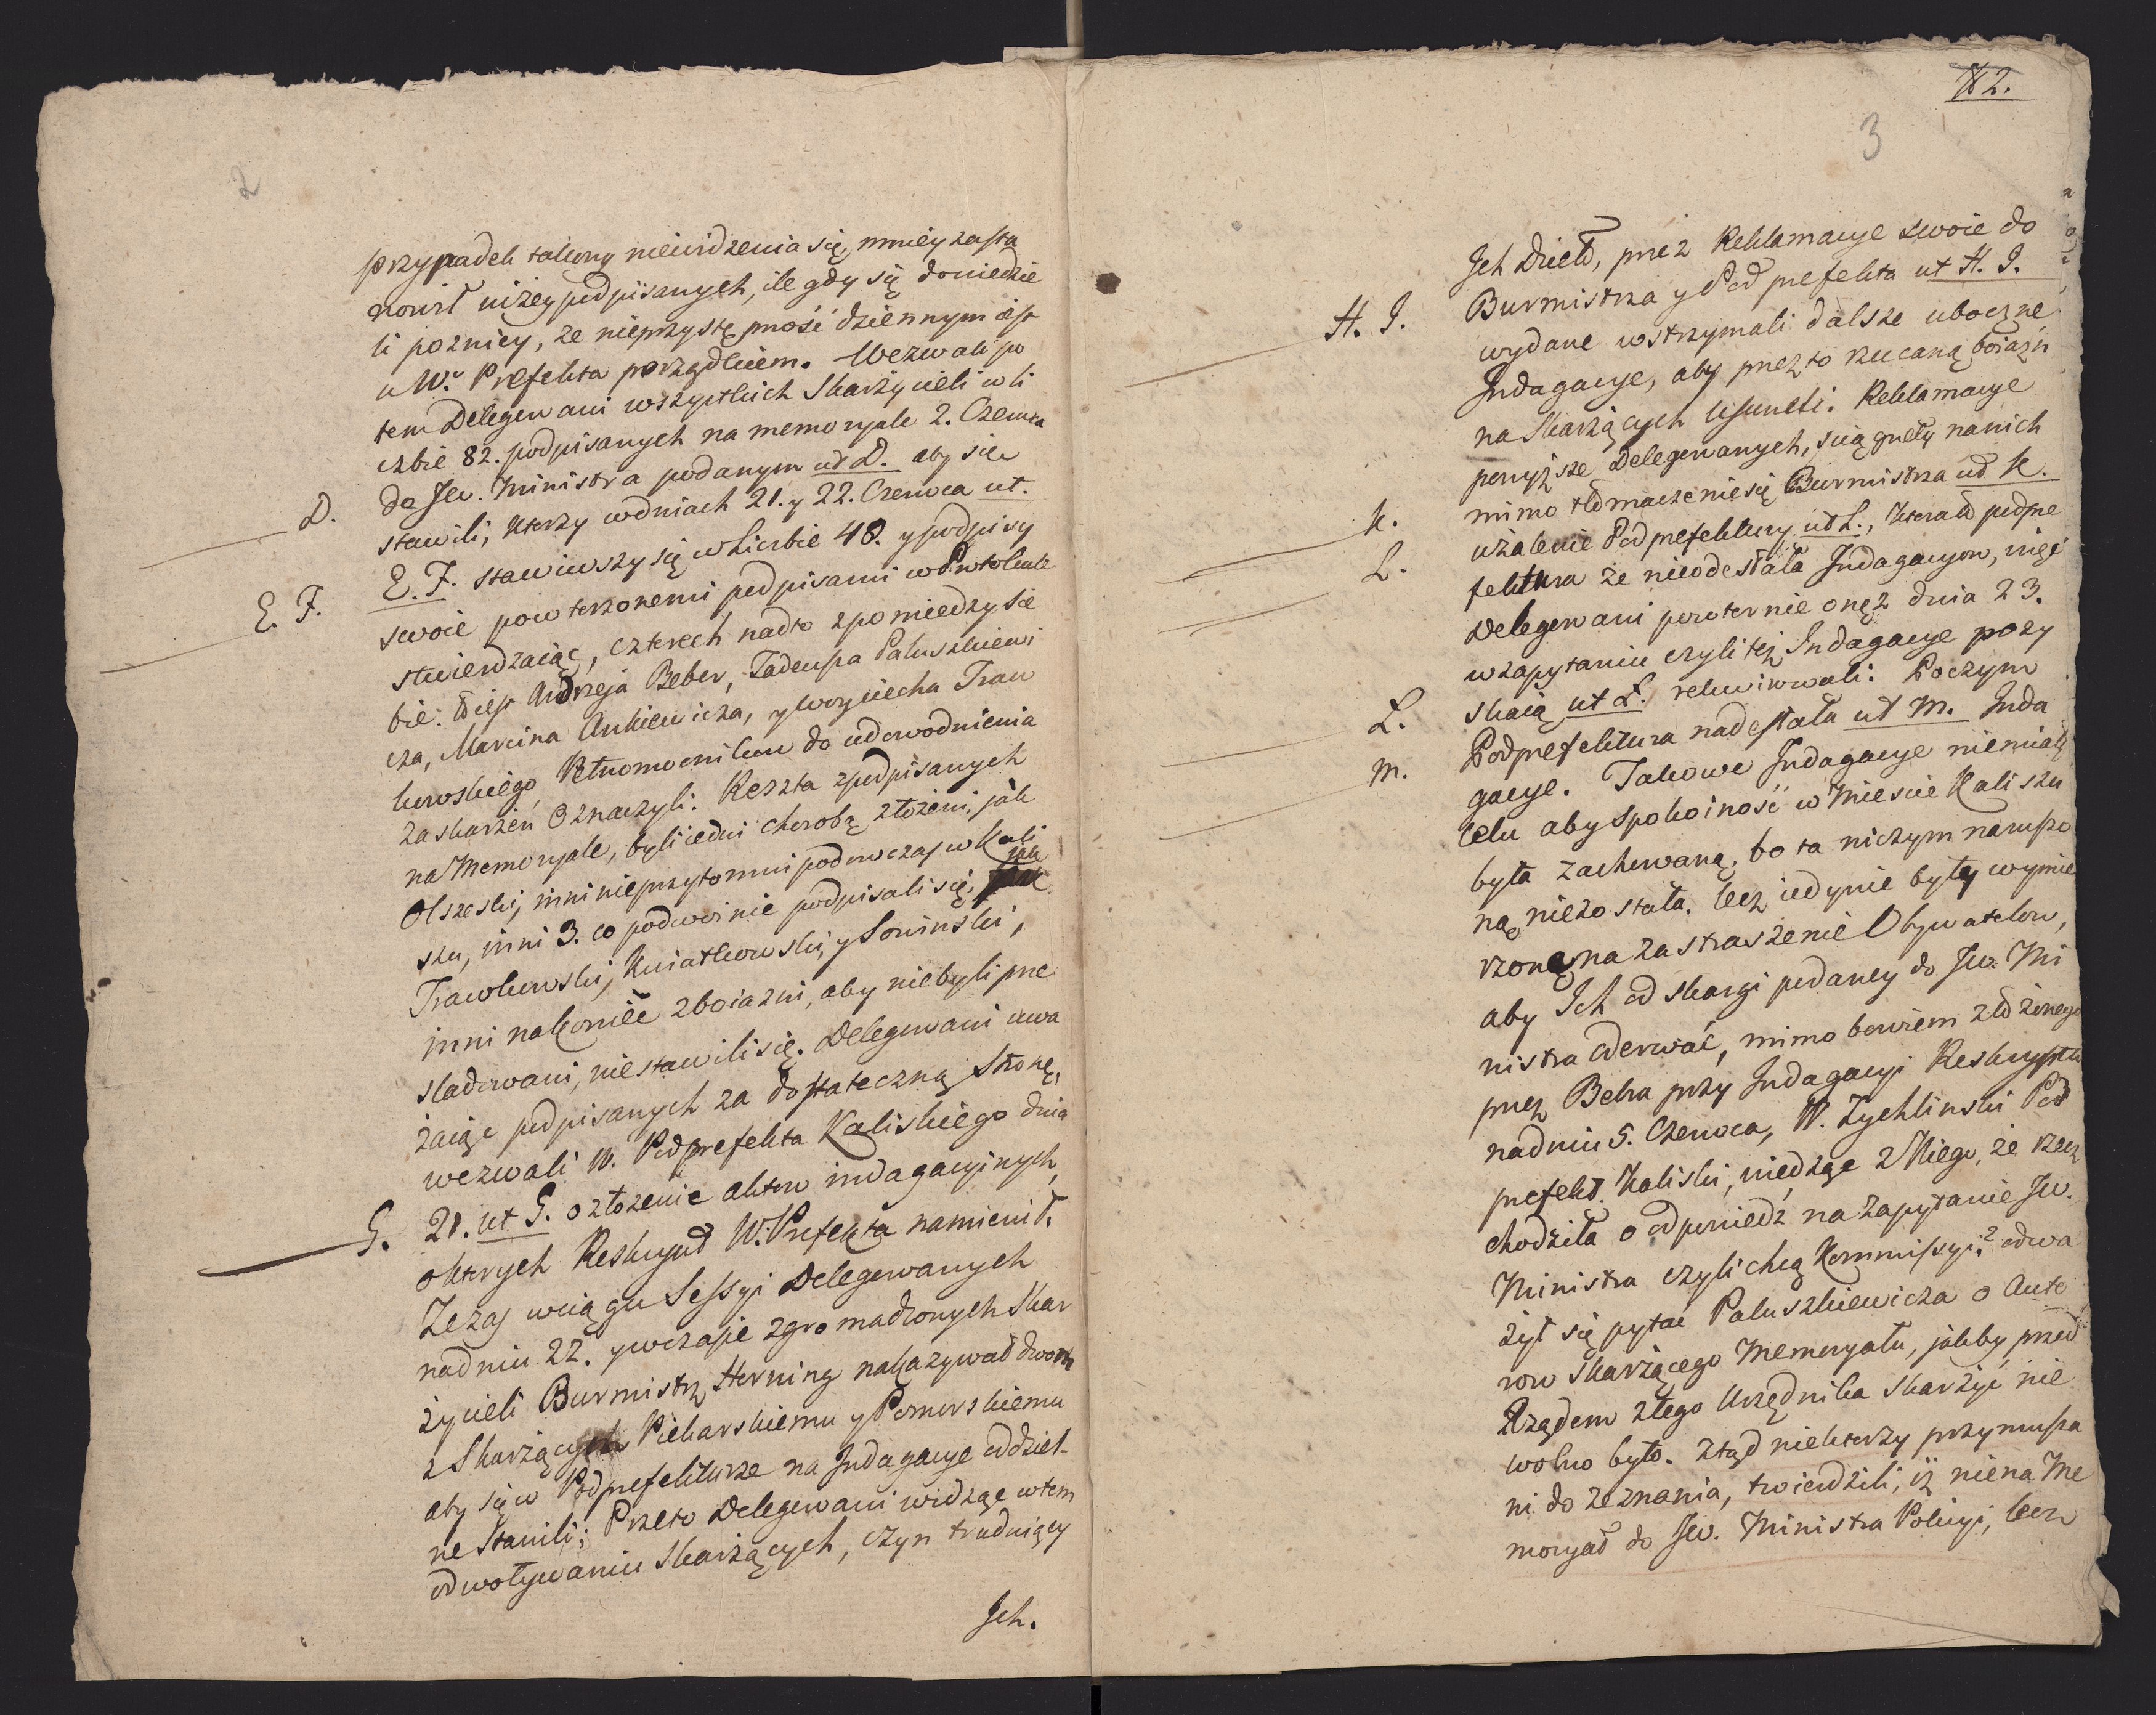 2
przypadek takowy niewidzenia się, mniey zasta
nowił niżey podpisanych, ile gdy się doniedzie
li pozniey, że nieprzystępność dziennym iest
u W. Prefekta porządkiem. Wezwali po
tem Delegowani wszystkich Skarżycieli w li
czbie 82. podpisanych na memoryale 2. Czerwca
D. do Jw. Ministra podanym ut D. aby się
stawili, ktorzy w dniach 21. y 22. Czerwca ut.
E. F. E. F. stawiwszy się w Liczbie 48. y podpisy
swoie powterzonemi podpisami w Protokule
stwierdzaiąc, czterech nadto z pomiedzy sie
bie: to iest Andrzeja Beber, Tadeusza Paluszkiewi
cza, Marcina Ankiewicza, y Woyciecha Traw
kowskiego, Pełnomocnikow do udowodnienia
zaskarżeń Oznaczyli. Reszta z podpisanych
na Memoryale, byli iedni chorobą złożeni, jak
Olszeski, inni nieprzytomni podowczas w Kali
szu, inni 3. co podwoinie podpisali się, jak
Trawkowski, Kwiatkowski, y Sowinski,
inni nakoniec z boiazni, aby niebyli prze
sladowani, niestawili się. Delegowani uwa
żaiąc podpisanych za dostateczną Stronę,
wezwali W. Podprefekta Kaliskiego dnia
G. 21. ut G. o złożenie aktow indagacyinych,
o ktorych Reskrypt W. Prefekta namienił.
Ze zaś w ciągu Sessyi Delegowanych
na dniu 22. y w czasie zgromadzonych Skar
życieli Burmistrz Herning nakazywał dwom
z Skarżących Piekarskiemu y Pomorskiemu
aby się w Podprefekturze na Indagacye oddziel-
ne Stawili; Przeto Delegowani widząc w tem
odwoływaniu Skarżących, czyn trudniący
Ich.
82.
3
Ich Dzieło, przez Reklamacye swoie do
H. I. Burmistrza y Podprefekta ut H. I.
wydane wstrzymali dalsze uboczne
Indagacye, aby przez to rzucaną boiaźń
na Skarżących usuneli. Reklamacye
powyższe Delegowanych, sciągneły na nich
K. mimo tłomaczenie się Burmistrza ut K.
L. użalenie Podprefektury ut L., ktora to podpre
fektura że nieodesłała Indagacyow, więc
Delegowani powtornie onęż dnia 23.
w zapytaniu czyli też Indagacye pozy
L. skaią ut L. rekwirowali. Poczym
M. Podprefektura nadesłała ut M. Inda
gacye. Takowe Indagacye niemiały
celu aby Spokoiność w Miescie Kaliszu
była zachowaną, bo ta niczym naruszo
ną niezostała. lecz iedynie były wymie
rzone na zastraszenie Obywatelow,
aby Ich od skargi podaney do Jw. Mi
nistra oderwać, mimo bowiem złożonego
przez Bebra przy Indagacyi Reskryptu
na dniu 5. Czerwca, W. Zychlinski Pod
prefekt Kaliski, wiedząc z Niego, że rzecz
chodziła o odpowiedź na zapytanie Jw.
Ministra czyli chcą Kommissyi? odwa
żył się pytać Paluszkiewicza o Auto
row Skarżącego Memoryału, jakby przed
Rządem złego Urzędnika Skarżyć nie
wolno było. Ztąd niektorzy przymusza
ni do zeznania, twierdzili, iż nie na Me
moryał do Jw. Ministra Policyi, lecz